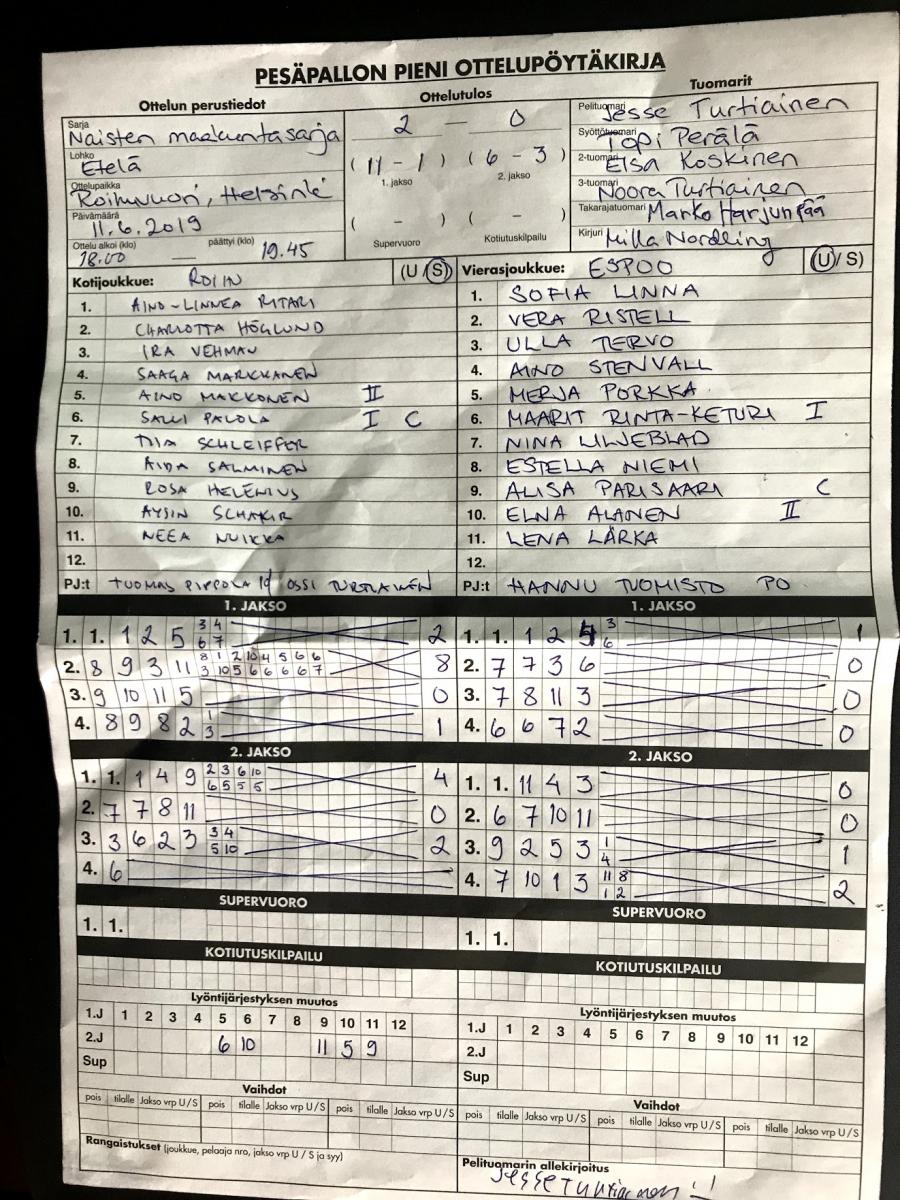 PESÄPALLON PIENI OTTELUPÖYTÄKIRJA
Ottelun perustiedot
Ottelutulos
Tuomarit
Sarja
Naisten maakuntasarja
Lohko
Etelä
Ottelupaikka
Roihuvuori, Helsinki
Päivämäärä
11.6.2019
Ottelu alkoi (klo) 18.00 päättyi (klo) 19.45
2 — 0
(11 - 1) (6 - 3)
1. jakso 2. jakso
( - ) ( - )
Supervuoro Kotiutuskilpailu
Pelituomari Jesse Turtiainen
Syöttötuomari Topi Perälä
2-tuomari Elsa Koskinen
3-tuomari Noora Turtiainen
Takarajatuomari Marko Harjunpää
Kirjuri Milla Nordling
Kotijoukkue: ROIHU (U/S)
1. AINO-LINNEA RITARI
2. CHARLOTTA HÖGLUND
3. IRA VEHMAN
4. SAAGA MARKKANEN
5. AINO MAKKONEN II
6. SALLI PALOLA I C
7. TIIA SCHLEIFFER
8. AIDA SALMINEN
9. ROSA HELENIUS
10. AYSIN SCHAKIR
11. NEEA NUIKKA
12.
PJ:t TUOMAS PIPPOLA OSSI TURTIAINEN
Vierasjoukkue: ESPOO (U/S)
1. SOFIA LINNA
2. VERA RISTELL
3. ULLA TERVO
4. AINO STENVALL
5. MERJA PORKKA
6. MAARIT RINTA-KETURI I
7. NINA LILJEBLAD
8. ESTELLA NIEMI
9. ALISA PARISAARI C
10. ELNA ALANEN II
11. LENA LÄRKA
12.
PJ:t HANNU TUOMISTO PO
1. JAKSO
1. 1. 1 2 5 3 4 2
6 7
2. 8 9 3 11 8 1 2 10 4 5 6 6 8
3 10 5 6 6 6 6 7
3. 9 10 11 5 0
4. 8 9 8 2 1 1
3
2. JAKSO
1. 1. 1 4 9 2 3 6 10 4
6 5 5 5
2. 7 7 8 11 0
3. 3 6 2 3 3 4 2
5 10
4. 6
SUPERVUORO
1. 1.
KOTIUTUSKILPAILU
Lyöntijärjestyksen muutos
1.J 1 2 3 4 5 6 7 8 9 10 11 12
2.J 6 10 11 5 9
Sup
Vaihdot
pois tilalle Jakso vrp U/S pois tilalle Jakso vrp U/S pois tilalle Jakso vrp U/S
Rangaistukset (joukkue, pelaaja nro, jakso vrp U / S ja syy)
1. JAKSO
1. 1. 1 2 3 1
6
2. 7 7 3 6 0
3. 7 8 11 3 0
4. 6 6 7 2 0
2. JAKSO
1. 1. 11 4 3 0
2. 6 7 10 11 0
3. 9 2 5 3 1 1
4
4. 7 10 1 3 11 8 2
1 2
SUPERVUORO
1. 1.
KOTIUTUSKILPAILU
Lyöntijärjestyksen muutos
1.J 1 2 3 4 5 6 7 8 9 10 11 12
2.J
Sup
Vaihdot
pois tilalle Jakso vrp U/S pois tilalle Jakso vrp U/S pois tilalle Jakso vrp U/S
Pelituomarin allekirjoitus
Jesse Turtiainen